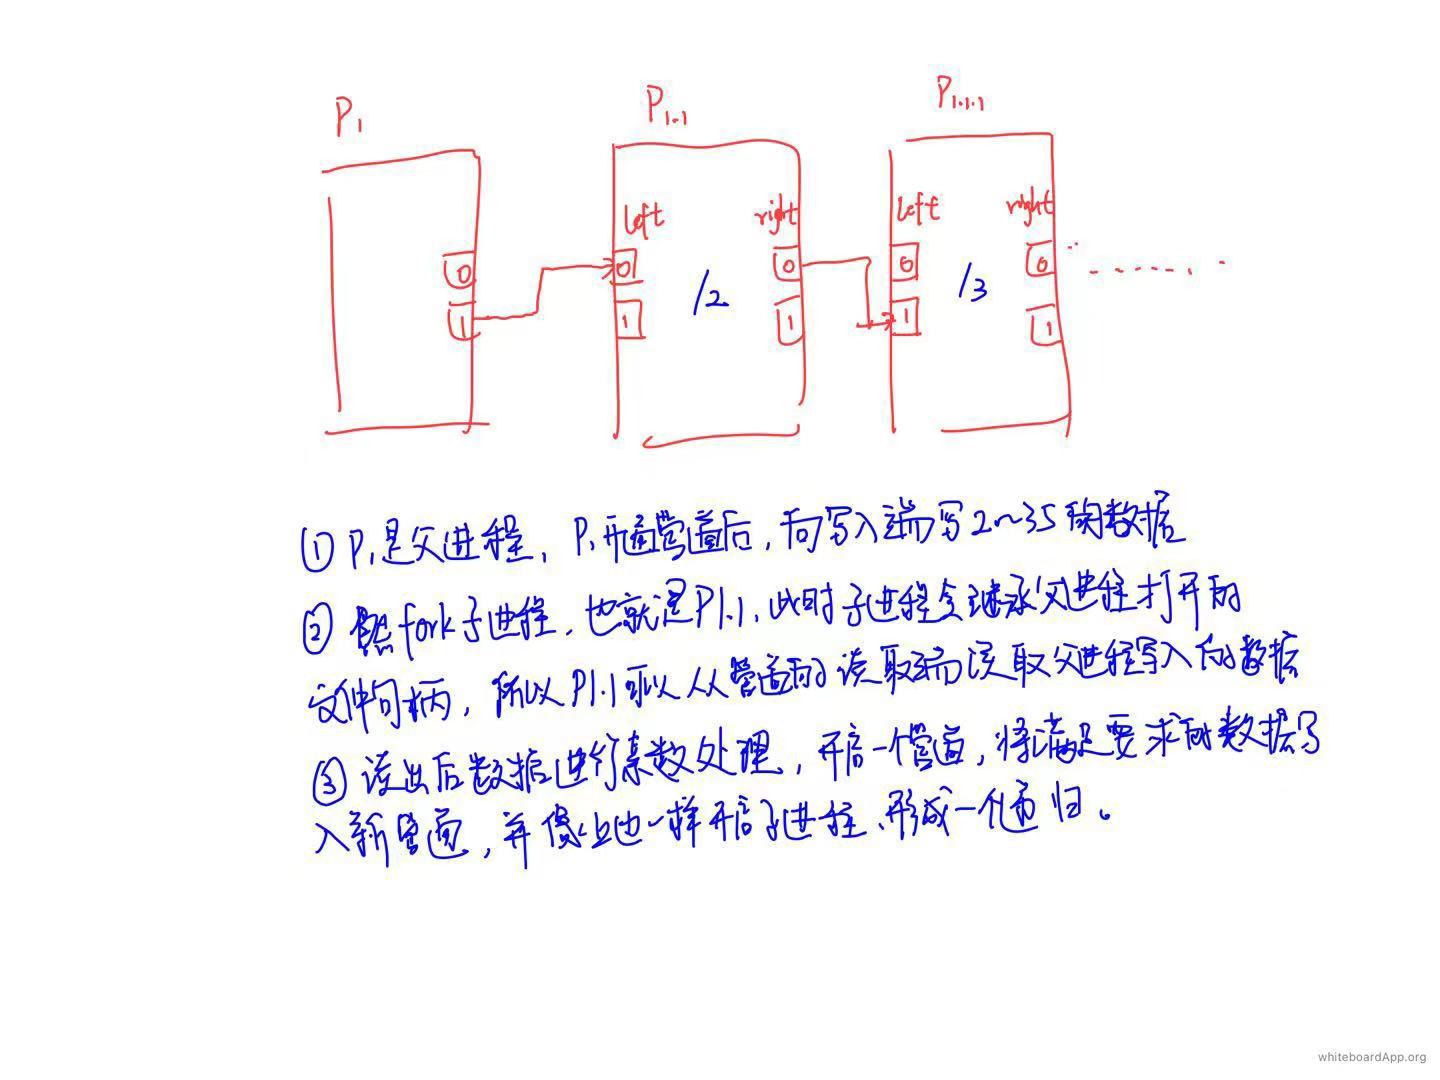 P1 P1.1 P1.1.1
left right left right
0 0 0 0 0
1 1 1 1 1
/2 /3
① P1是父进程, P1开通管道后, 向写入端写2~35的数据
② 然fork子进程, 也就是P1.1, 此时子进程会继承父进程打开的
文件句柄, 所以P1.1可以从管道的读取端读取父进程写入的数据
③ 读出后数据进行素数处理, 开启一个管道, 将满足要求的数据写
入新管道, 并像上边一样开启子进程、形成一个递归。
whiteboardApp.org